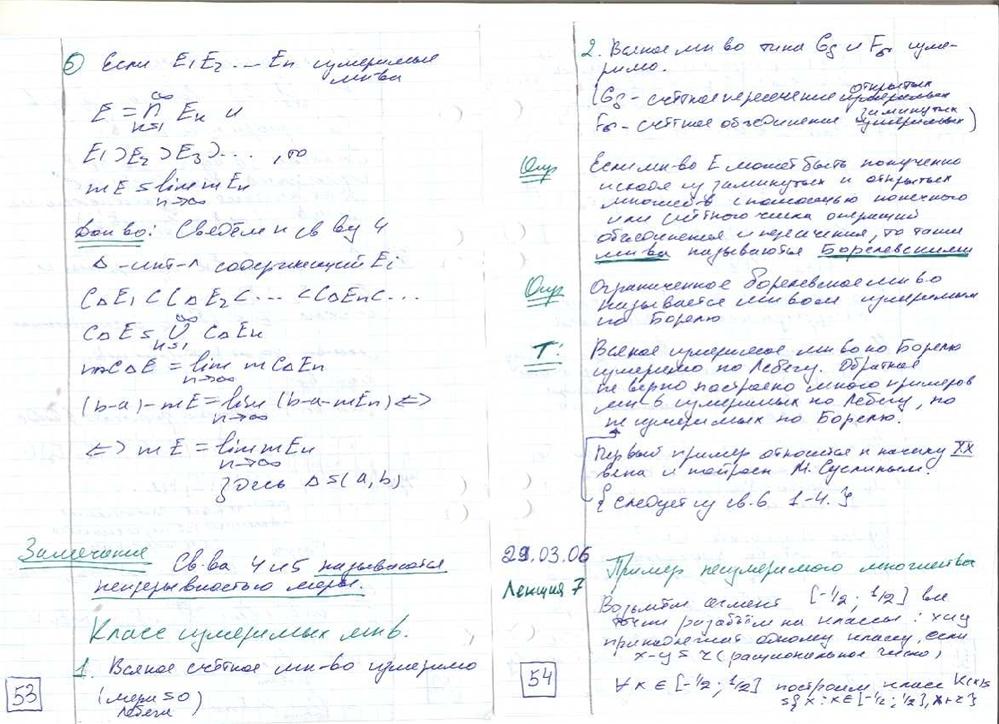 5) Если E₁E₂ ... Eₙ измеримые
мн-ва
E = ∩ₙ₌₁^∞ Eₙ и
E₁⊃E₂⊃E₃⊃... , то
mE = lim_{n→∞} mEₙ
Док-во: Сведём к св-ву 4
Δ - инт-л содержащий Eᵢ
C_ΔE₁ ⊂ C_ΔE₂ ⊂ ... ⊂ C_ΔEₙ ⊂ ...
C_ΔE = ∪ₙ₌₁^∞ C_ΔEₙ
mC_ΔE = lim_{n→∞} mC_ΔEₙ
(b-a)-mE = lim_{n→∞} (b-a-mEₙ) ⇔
⇔ mE = lim_{n→∞} mEₙ
}здесь Δ=(a,b)
Замечание Св-ва 4 и 5 называются
непрерывностью меры.
Класс измеримых мн-в.
1. Всякое счётное мн-во измеримо
(мера = 0)
Лебега
53
2. Всякое мн-во типа G_δ и F_σ изме-
римо.
(G_δ - счётное пересечение открытых
F_σ - счётное объединение замкнутых)
Опр Если мн-во E может быть получено
исходя из замкнутых и открытых
множеств с помощью конечного
или счётного числа операций
объединения и пересечения, то такие
мн-ва называются Борелевскими
Опр Ограниченное борелевское мн-во
называется мн-вом измеримым
по Борелю
Т: Всякое измеримое мн-во по Борелю
измеримо по Лебегу. Обратное
не верно построено много примеров
мн-в измеримых по Лебегу, но
не измеримых по Борелю.
Первый пример относится к началу XX
века и построен М. Суслиным.
{следует из св-в 1-4.}
29.03.06
Лекция 7
Пример неизмеримого множества
Возьмём сегмент [-1/2; 1/2] все
точки разобьём на классы: x и y
принадлежат одному классу, если
x-y = r (рациональное число)
∀x ∈ [-1/2; 1/2] построим класс K(x)=
={x: x∈[-1/2; 1/2], x+r}
54